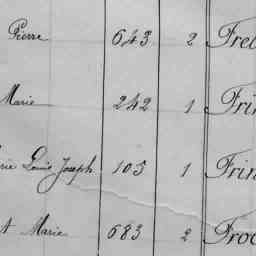 Pierre 643 2 Fre
Marie 242 1 Fri
rie Louis Joseph 105 1 Frin
t Marie 683 2 Froo